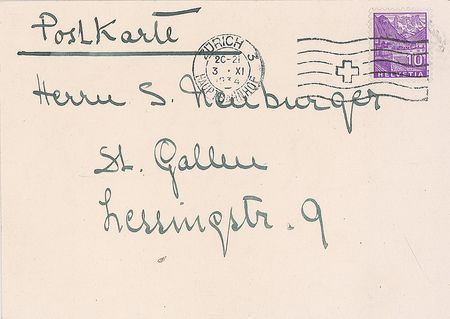 Postkarte
ZÜRICH 3
20-21
3. XI
1934
HAUPTBAHNHOF
10
HELVETIA
Herrn S. Neuburger
St. Gallen
Lessingstr. 9